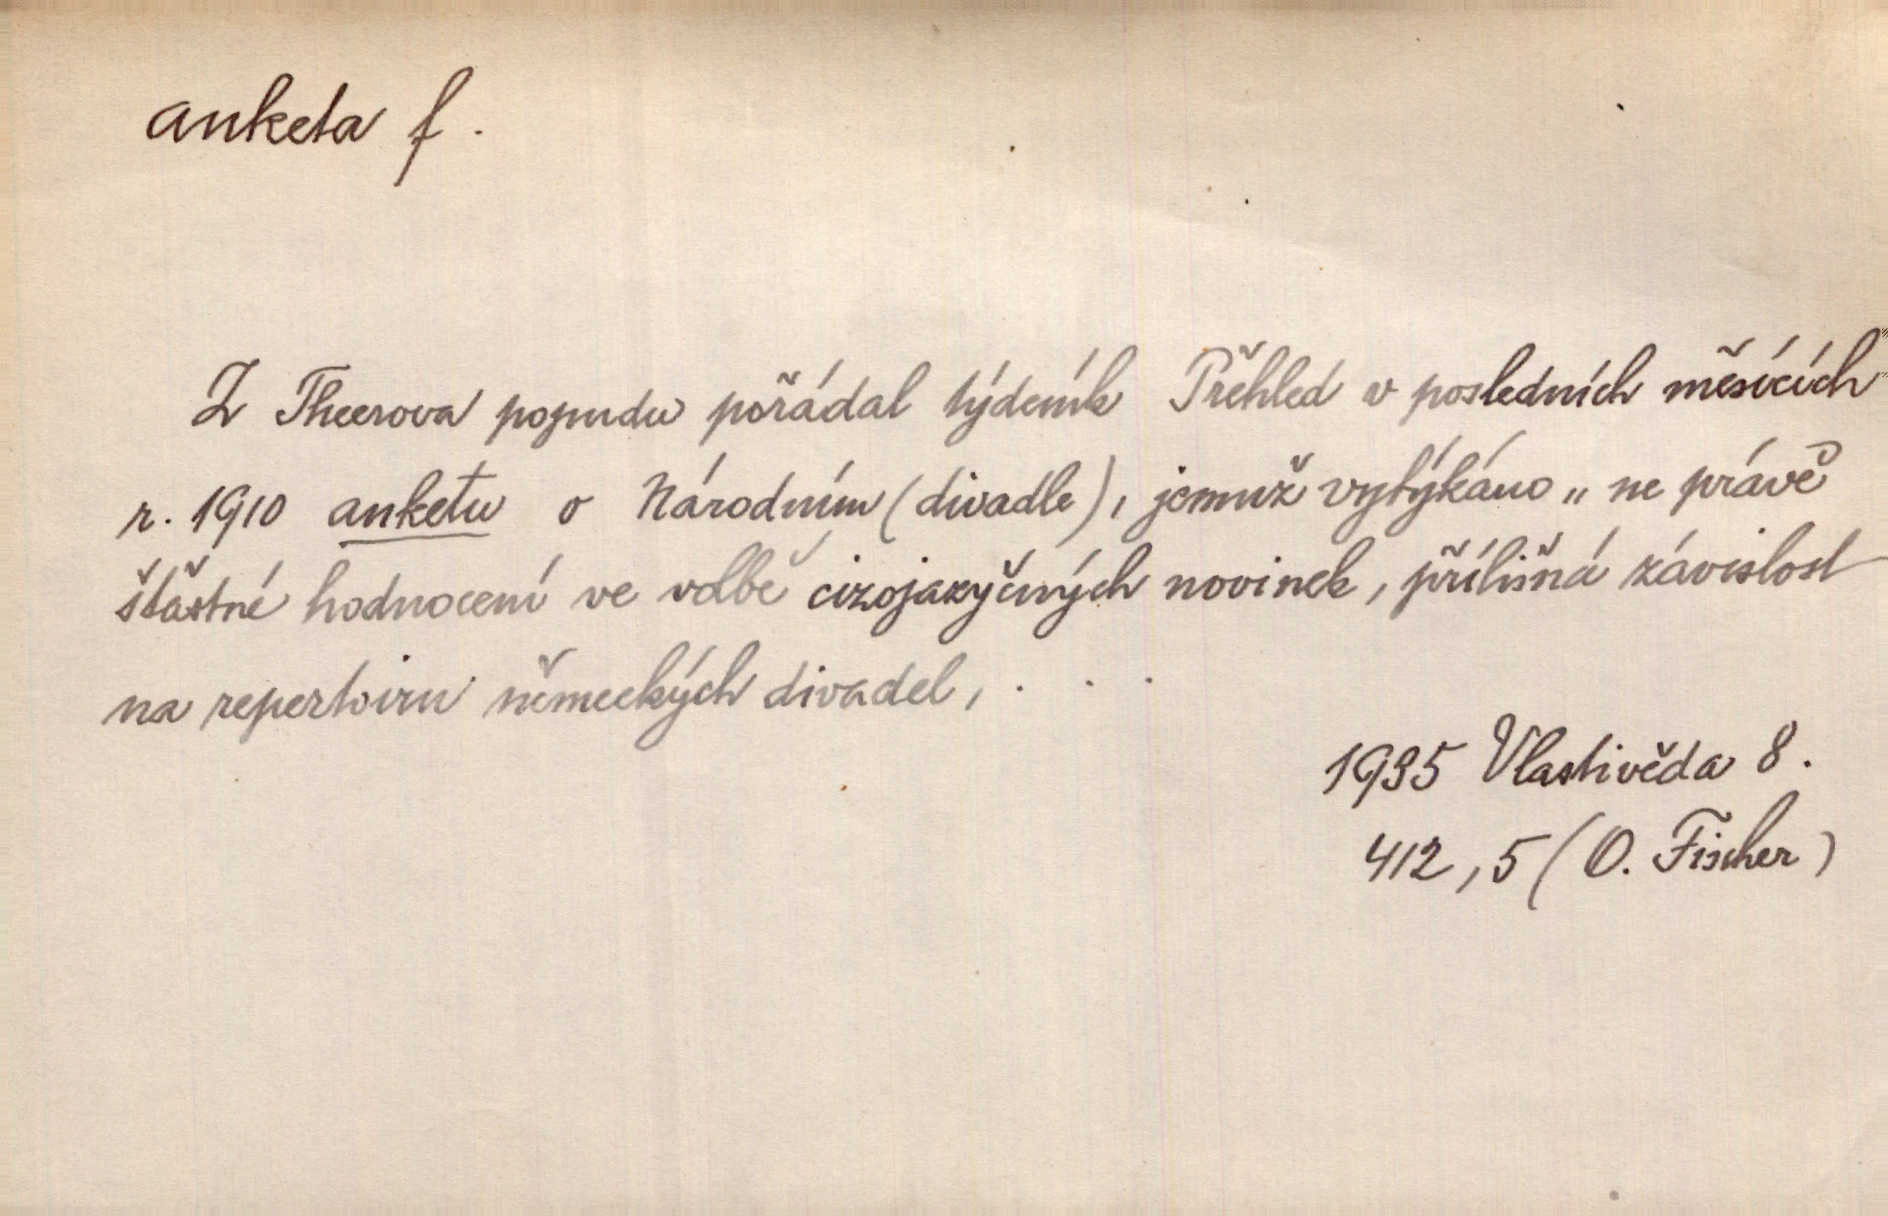 anketa f.
Z Theerova popudu pořádal týdeník Přehled v posledních měsících
r. 1910 anketu o Národním (divadle), jemuž vytýkáno „ne právě
šťastné hodnocení ve volbě cizojazyčných novinek, přílišná závislost
na repertoiru německých divadel, . . .
1935 Vlastivěda 8.
412, 5 (O. Fischer)